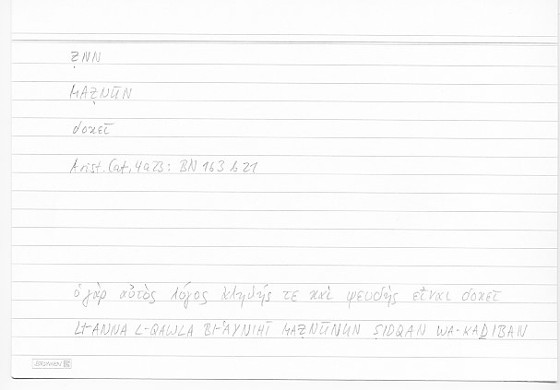 ẒNN
MAẒNŪN
δοκεῖ
Arist. Cat. 4a23: BN 163 b 21
ὁ γὰρ αὐτὸς λόγος ἀληθής τε καὶ ψευδὴς εἶναι δοκεῖ
LI-ANNA L-QAWLA BI-ʿAYNIHĪ MAẒNŪNUN ṢIDQAN WA-KAḎIBAN